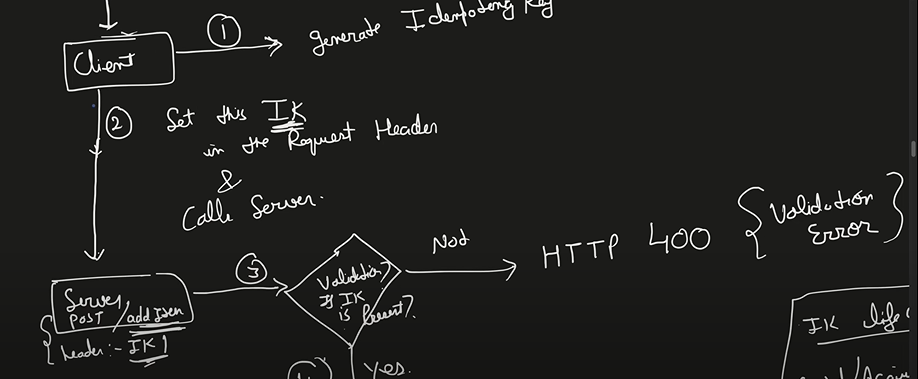 1
generate Idempotency Key
Client
2
Set this IK
in the Request Header
&
Calls Server.
3
Server,
POST / add Item
header :- IK1
Validation
If IK
is Present?
Not
HTTP 400
{ Validation
Error }
Yes.
IK life